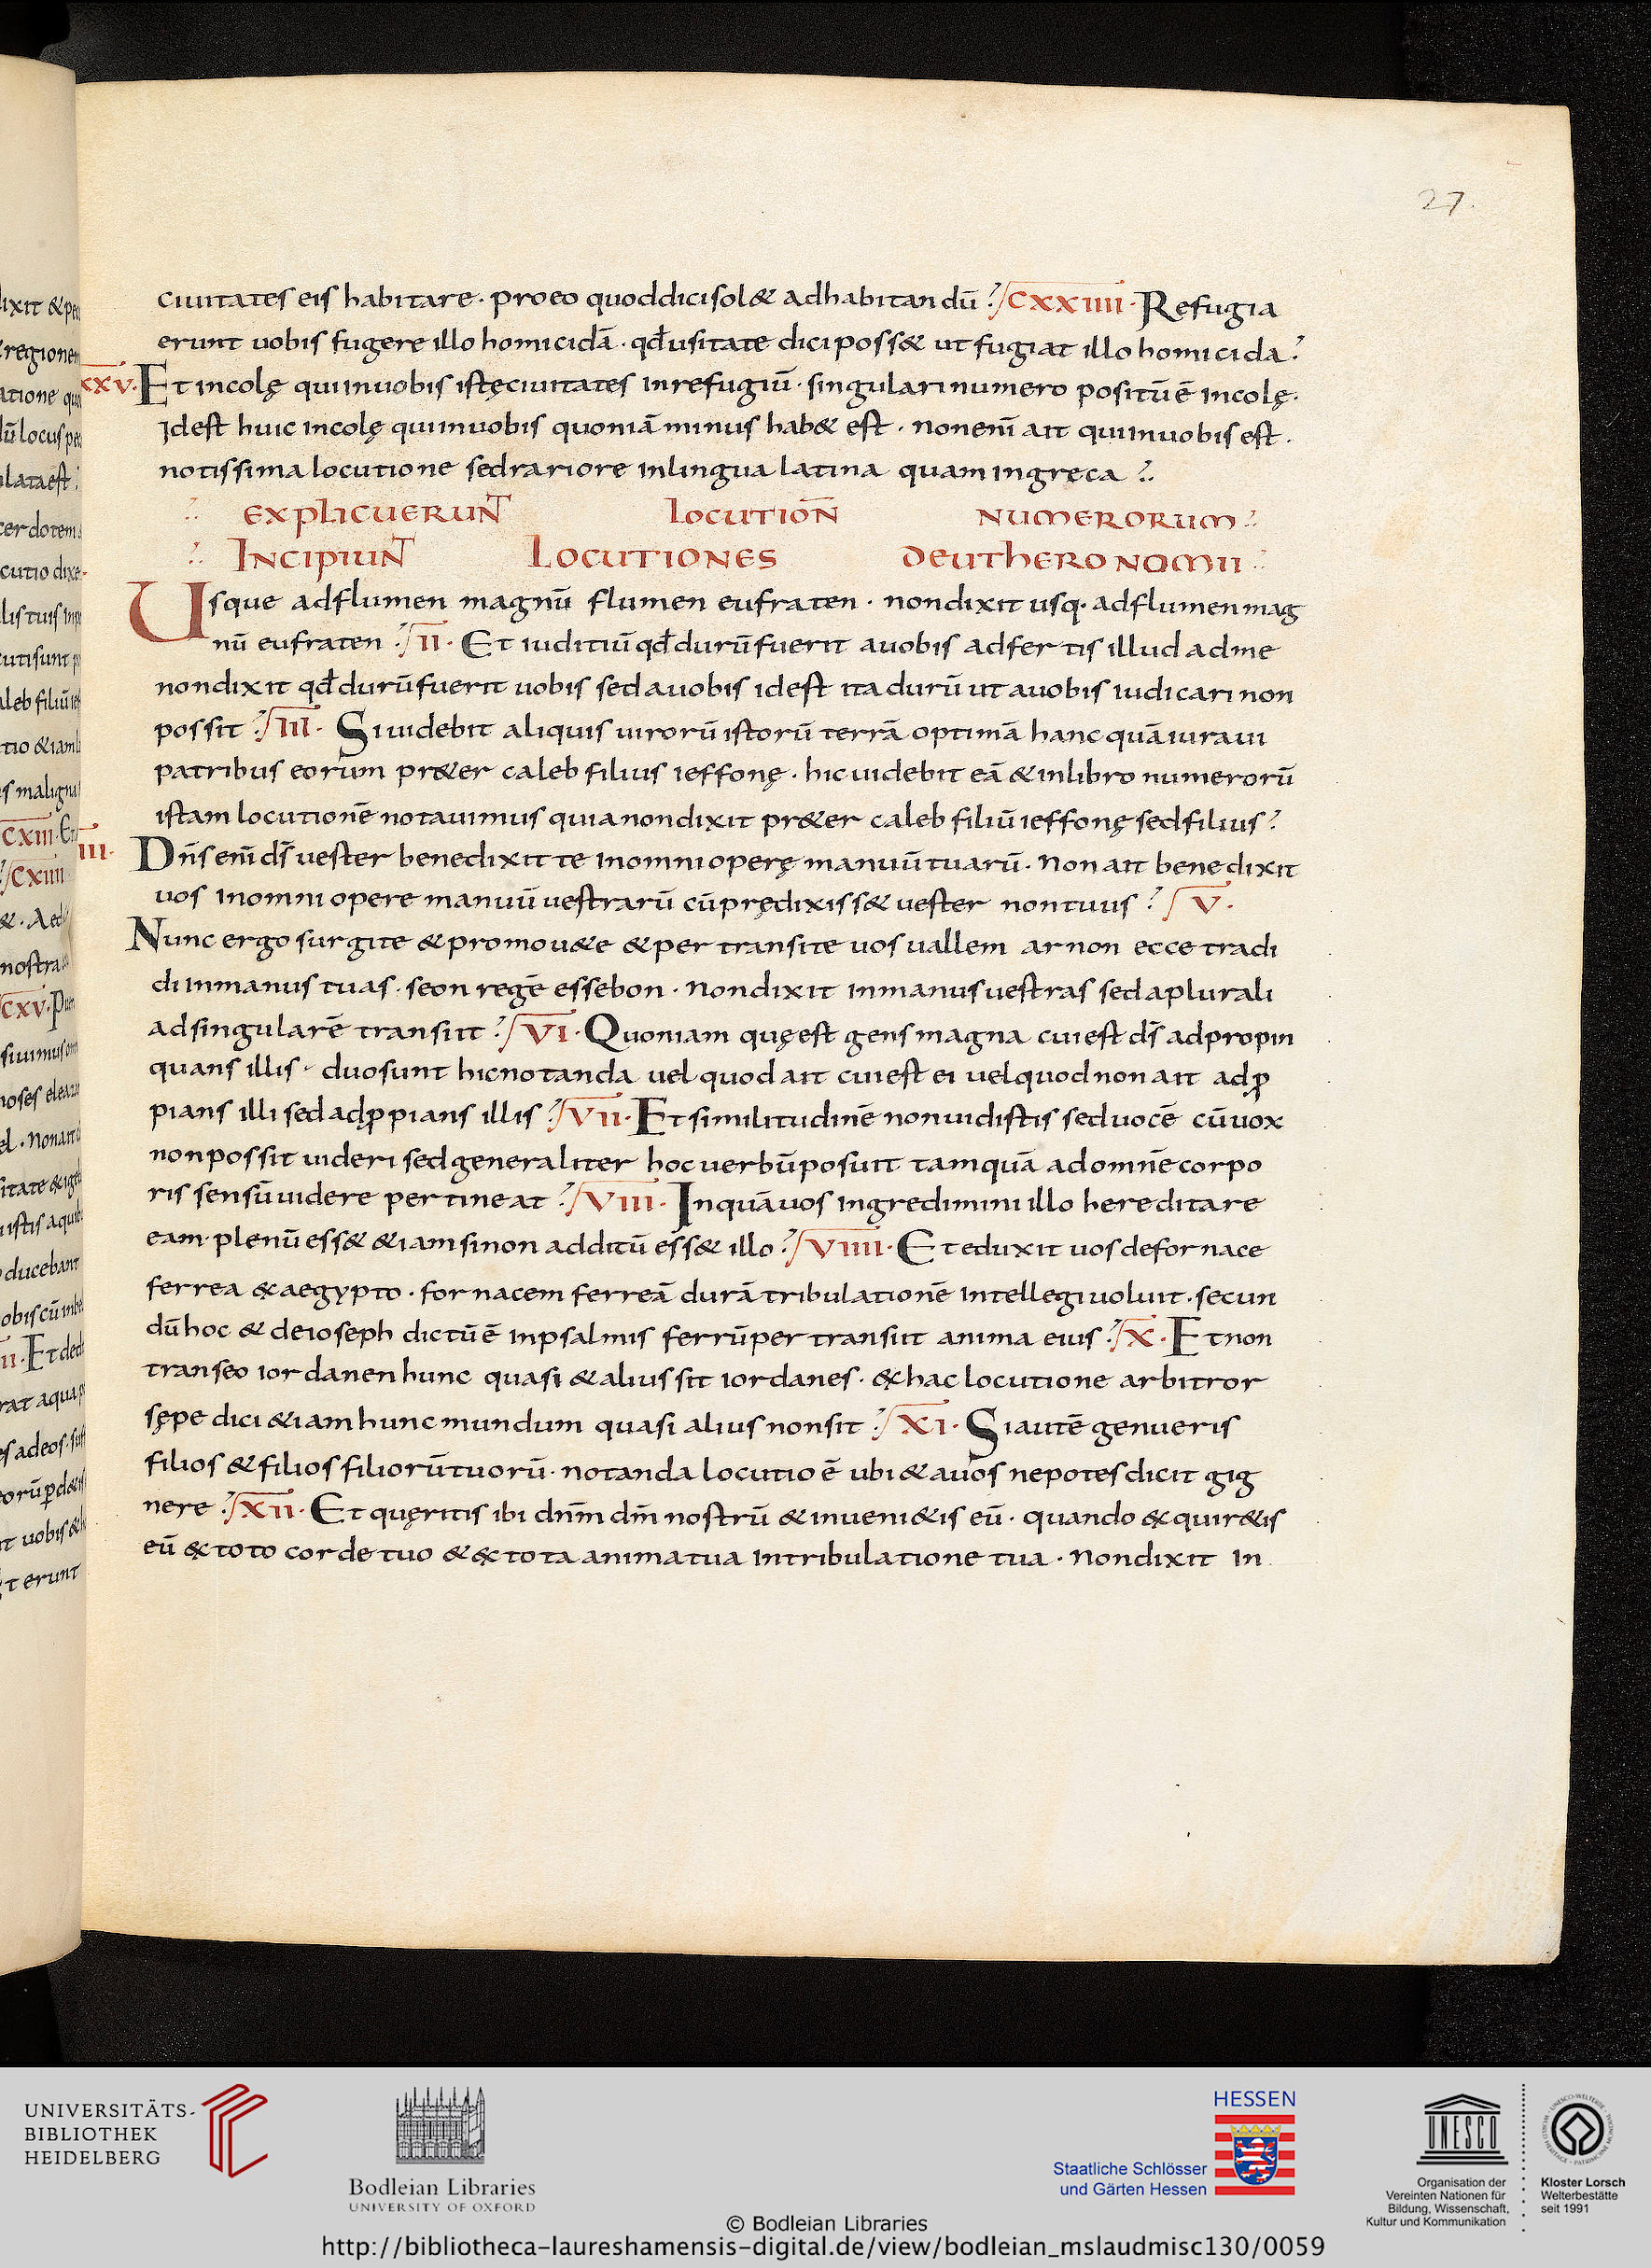 27.
ciuitates eis habitare · pro eo quod dici sol& ad habitandū CXXIIII · Refugia
erunt uobis fugere illo homicidā · qđ usitate dici poss& ut fugiat illo homicida
XXV · Et incolę qui in uobis istę ciuitates in refugiū · singulari numero positū ē incolę ·
Idest huic incolę qui in uobis quoniā minus hab& est · non enī ait qui in uobis est ·
notissima locutione sed rariore in lingua latina quam in greca
EXPLICUERUNT LOCUTIOÑ NUMERORUM
INCIPIUNT LOCUTIONES DEUTHERONOMII
Usque ad flumen magnū flumen eufraten · non dixit usq· ad flumen mag
nū eufraten II · Et iuditiū qđ durū fuerit a uobis adfertis illud ad me
non dixit qđ durū fuerit uobis sed a uobis idest ita durū ut a uobis iudicari non
possit III · Si uidebit aliquis uirorū istorū terrā optimā hanc quā iuraui
patribus eorum pr&er caleb filius ieffonę · hic uidebit eā & in libro numerorū
istam locutionē notauimus quia non dixit pr&er caleb filiū ieffonę sed filius
III · Dn̄s enī ds̄ uester benedixit te in omni operę manuū tuarū · Non ait benedixit
uos in omni opere manuū uestrarū cū prędixiss& uester non tuus V ·
Nunc ergo surgite & promou&e & pertransite uos uallem arnon ecce tradi
di in manus tuas · seon regē essebon · Non dixit in manus uestras sed a plurali
ad singularē transiit VI · Quoniam quę est gens magna cui est ds̄ adpropin
quans illis · duo sunt hic notanda uel quod ait cui est ei uel quod non ait adꝓ
pians illi sed adꝓpians illis VII · Et similitudinē non uidistis sed uocē cū uox
non possit uideri sed generaliter hoc uerbū posuit tamquā ad omnē corpo
ris sensū uidere pertineat VIII · In quā uos ingredimini illo hereditare
eam · plenū ess& &iam si non additū ess& illo VIIII · Et eduxit uos de fornace
ferrea ex aegypto · fornacem ferreā durā tribulationē intellegi uoluit · secun
dū hoc & de ioseph dictū ē in psalmis ferrū pertransiit anima eius X · Et non
transeo iordanen hunc quasi & alius sit iordanes · ex hac locutione arbitror
sępe dici &iam hunc mundum quasi alius non sit XI · Si autē genueris
filios & filios filiorū tuorū · notanda locutio ē ubi & auos nepotes dicit gig
nere XII · Et quęritis ibi dn̄m dm̄ nostrū & inueni&is eū · quando exquir&is
eū ex toto corde tuo & ex tota anima tua in tribulatione tua · Non dixit in
UNIVERSITÄTS-
BIBLIOTHEK
HEIDELBERG
Bodleian Libraries
UNIVERSITY OF OXFORD
HESSEN
Staatliche Schlösser
und Gärten Hessen
UNESCO
Organisation der
Vereinten Nationen für
Bildung, Wissenschaft,
Kultur und Kommunikation
Kloster Lorsch
Welterbestätte
seit 1991
© Bodleian Libraries
http://bibliotheca-laureshamensis-digital.de/view/bodleian_mslaudmisc130/0059